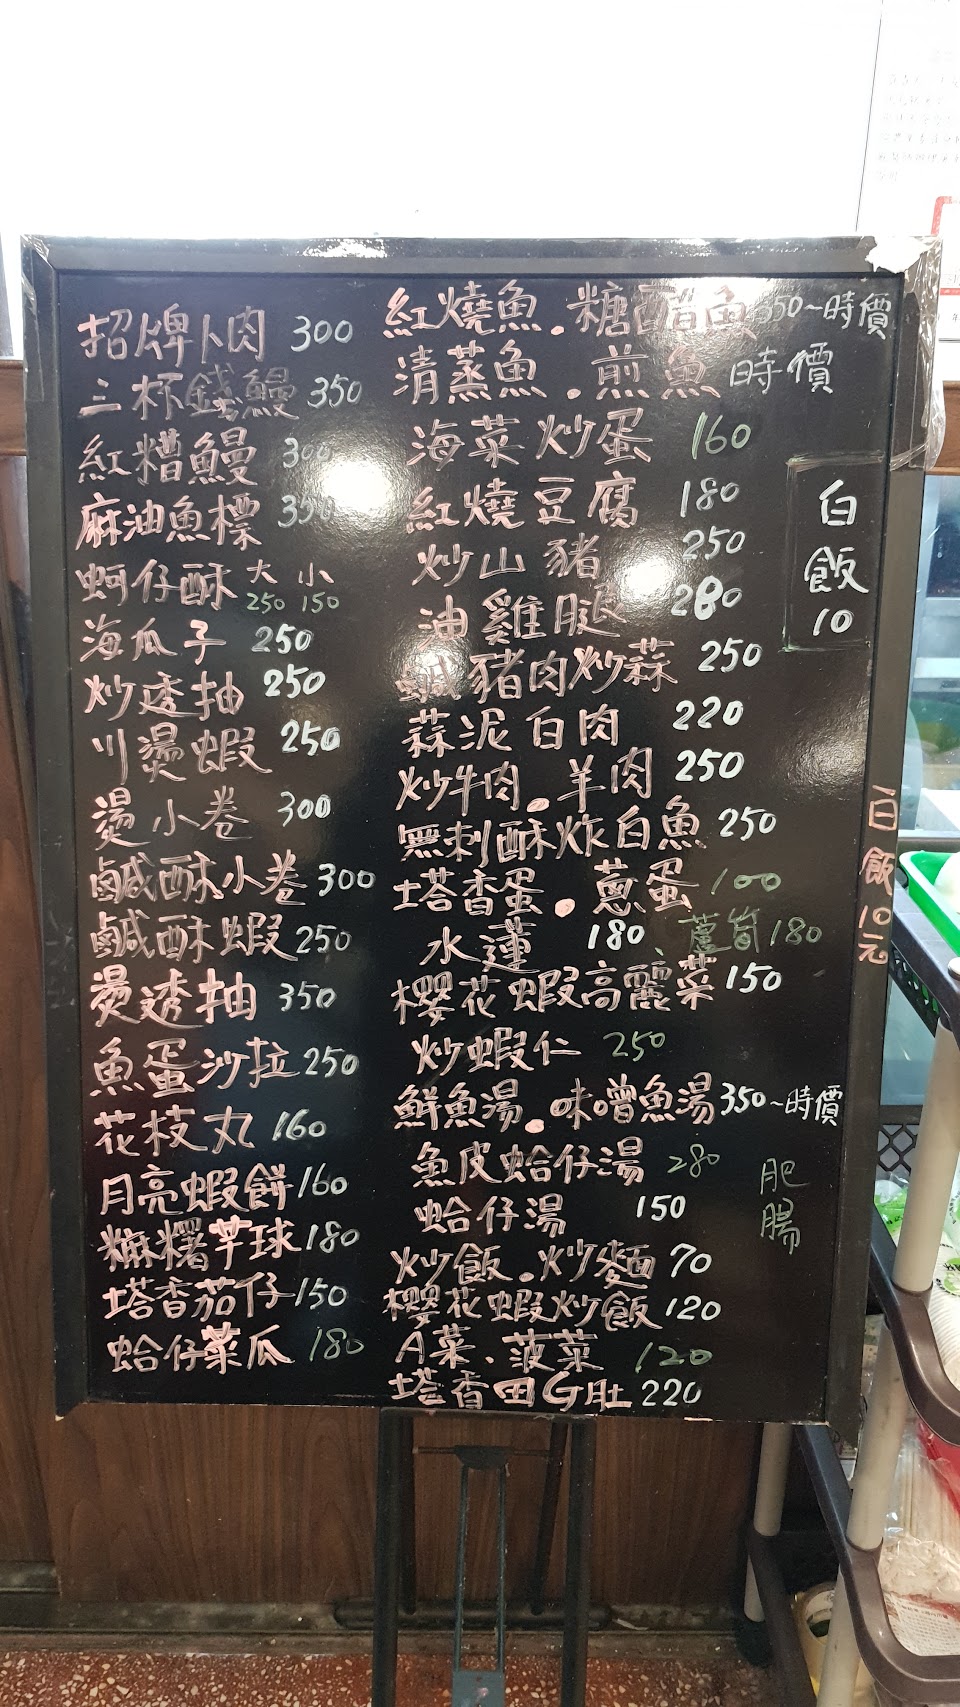 招牌卜肉 300
三杯錢鰻 350
紅糟鰻 300
麻油魚標 350
蚵仔酥 大 小
250 150
海瓜子 250
炒透抽 250
川燙蝦 250
燙小卷 300
鹹酥小卷 300
鹹酥蝦 250
燙透抽 350
魚蛋沙拉 250
花枝丸 160
月亮蝦餅 160
麻糬芋球 180
塔香茄仔 150
蛤仔菜瓜 180
紅燒魚.糖醋魚 350~時價
清蒸魚.煎魚 時價
海菜炒蛋 160
紅燒豆腐 180
炒山豬 250
油雞腿 280
鹹豬肉炒蒜 250
蒜泥白肉 220
炒牛肉.羊肉 250
無刺酥炸白魚 250
塔香蛋.蔥蛋 100
水蓮 180、蘆筍 180
櫻花蝦高麗菜 150
炒蝦仁 250
鮮魚湯.味噌魚湯 350~時價
魚皮蛤仔湯 280
蛤仔湯 150
炒飯.炒麵 70
櫻花蝦炒飯 120
A菜.菠菜 120
塔香田G肚 220
白飯
10
肥腸
白飯10元